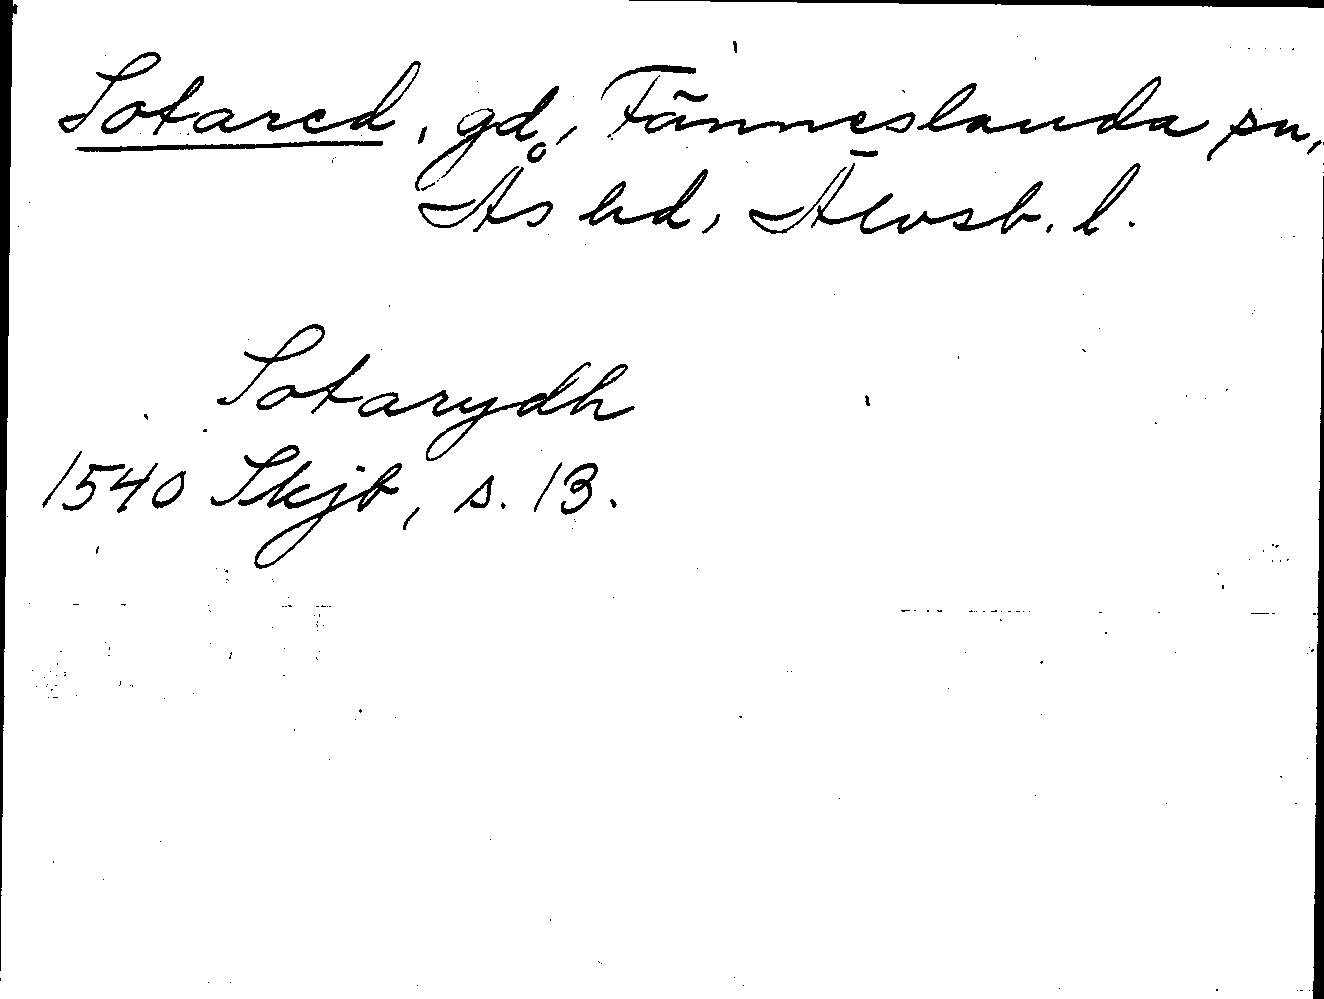 Sotared, gd, Fänneslanda sn,
Ås hd, Älvsb. l.
Sotarydh
1540 Skjb, s. 13.